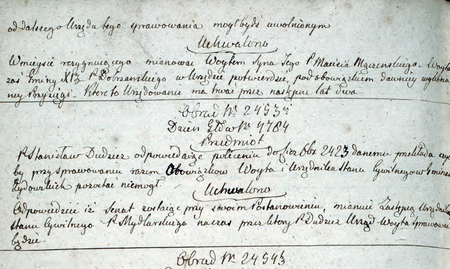 od dalszego Urzędu tego sprawowania mógł bydź uwolnionym
Uchwalono
W mieysce rezygnuiącego mianować Woytem Syna Jego P. Macieia Woyta
zaś Gminy XIV P. Dobrzańskiego w Urzędzie potwierdzić, pod obowiązkiem dawniey wykona
ney Przysięgi. Które to Urzędowanie ma trwać przez następne lat dwa.
Obrad Nr 24535
Dzien: Głow: Nr 4784
Przedmiot
P. Stanisław Dudzicz odpowiadaiąc poleceniu do Nr 2423 danemu przekłada czy
by przy sprawowaniu razem Obowiązków Woyta i Urzędnika Stanu Cywilnego w Gminach
Żydowskich pozostać niemógł
Uchwalono
Odpowiedzieć iż Senat zostaiąc przy swoim Postanowieniu, mianuie Zastępcą Urzędnika
Stanu Cywilnego P. Mydlarskiego na czas przez który P. Dudzicz Urząd Woyta sprawować
będzie.
Obrad Nr 24543